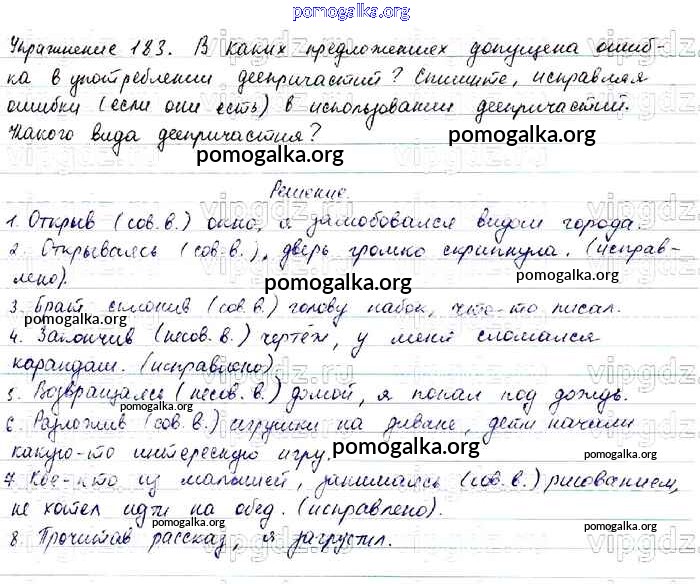 pomogalka.org
Упражнение 183. В каких предложениях допущена ошиб-
ка в употреблении деепричастий? Спишите, исправляя
ошибки (если они есть) в использовании деепричастий.
Какого вида деепричастия?
pomogalka.org
pomogalka.org
Решение.
1. Открыв (сов. в.) окно, я залюбовался видом города.
2. Открываясь (сов. в.), дверь громко скрипнула. (исправ-
лено).
pomogalka.org
pomogalka.org
3. Брат склонив (сов. в.) голову набок, что-то писал.
pomogalka.org
4. Закончив (несов. в.) чертёж, у меня сломался
карандаш. (исправлено).
pomogalka.org
5. Возвращаясь (несов. в.) домой, я попал под дождь.
pomogalka.org
6. Разложив (сов. в.) игрушки на диване, дети начали
какую-то интересную игру.
pomogalka.org
7. Кое-кто из малышей, занимаясь (сов. в.) рисованием,
не хотел идти на обед. (исправлено).
pomogalka.org
pomogalka.org
8. Прочитав рассказ, я загрустил.
vipgdz.ru